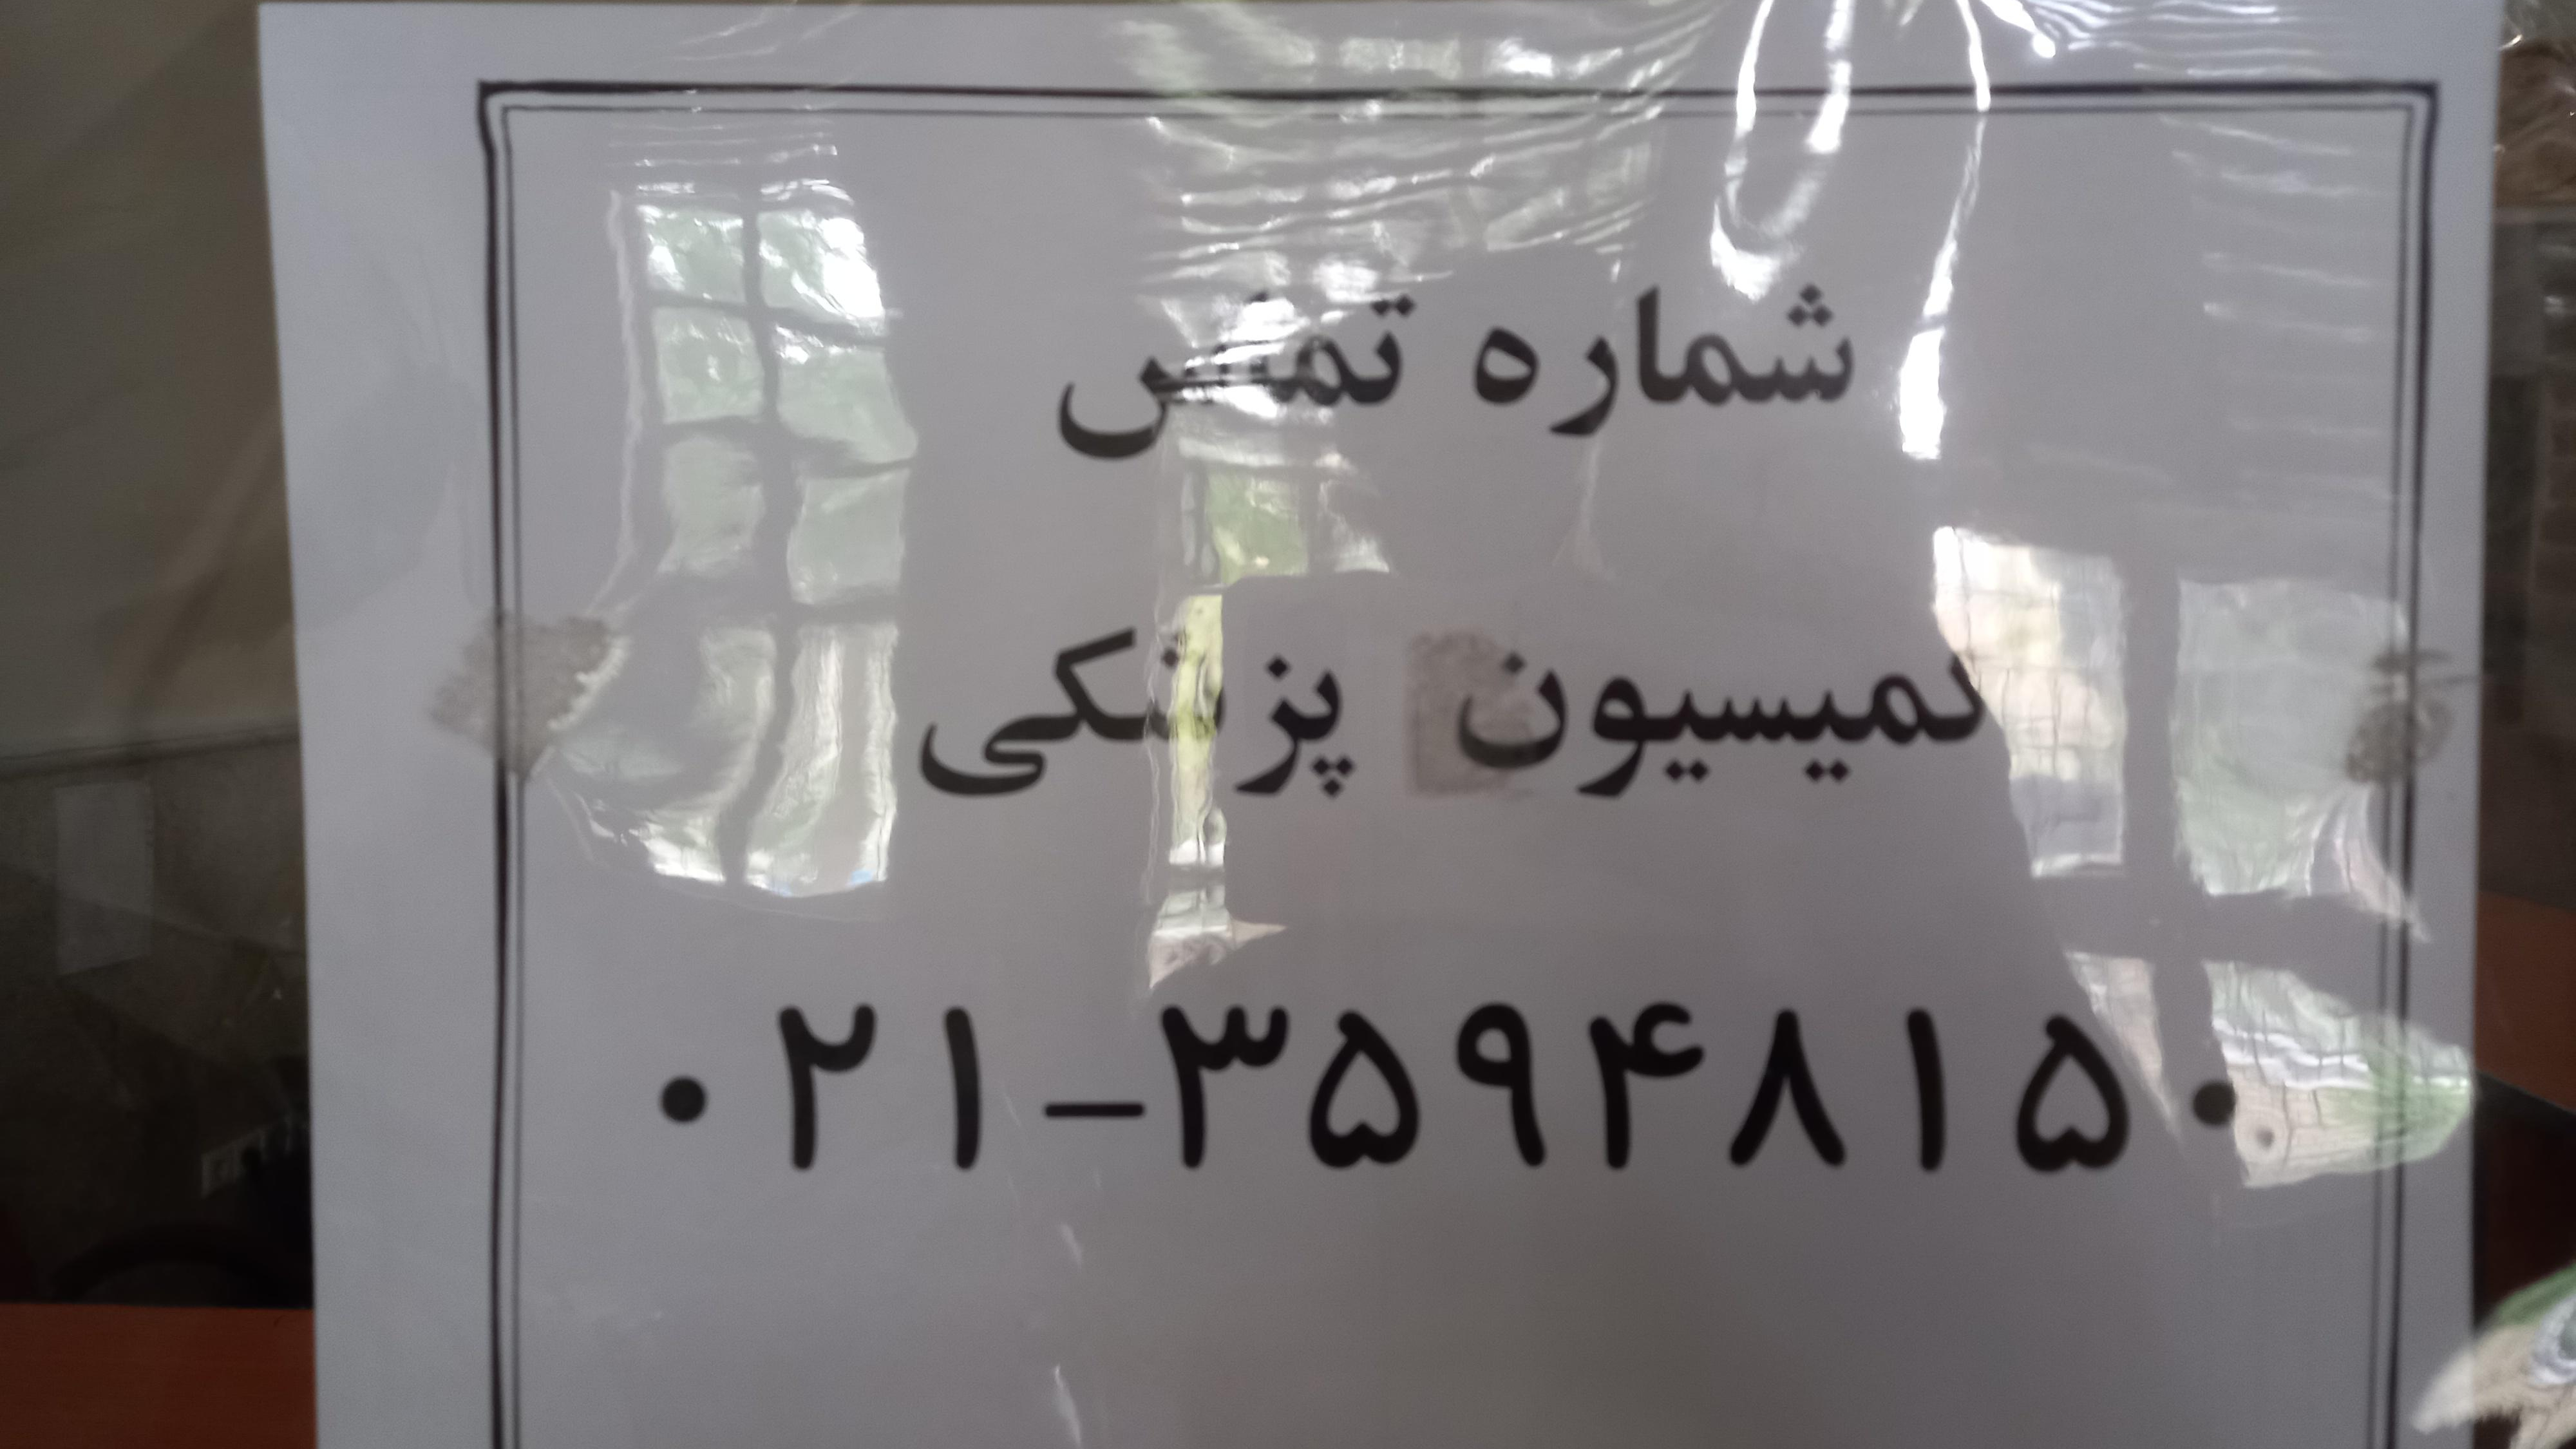 شماره تماس
کمیسیون پزشکی
۰۲۱-۳۵۹۴۸۱۵۰